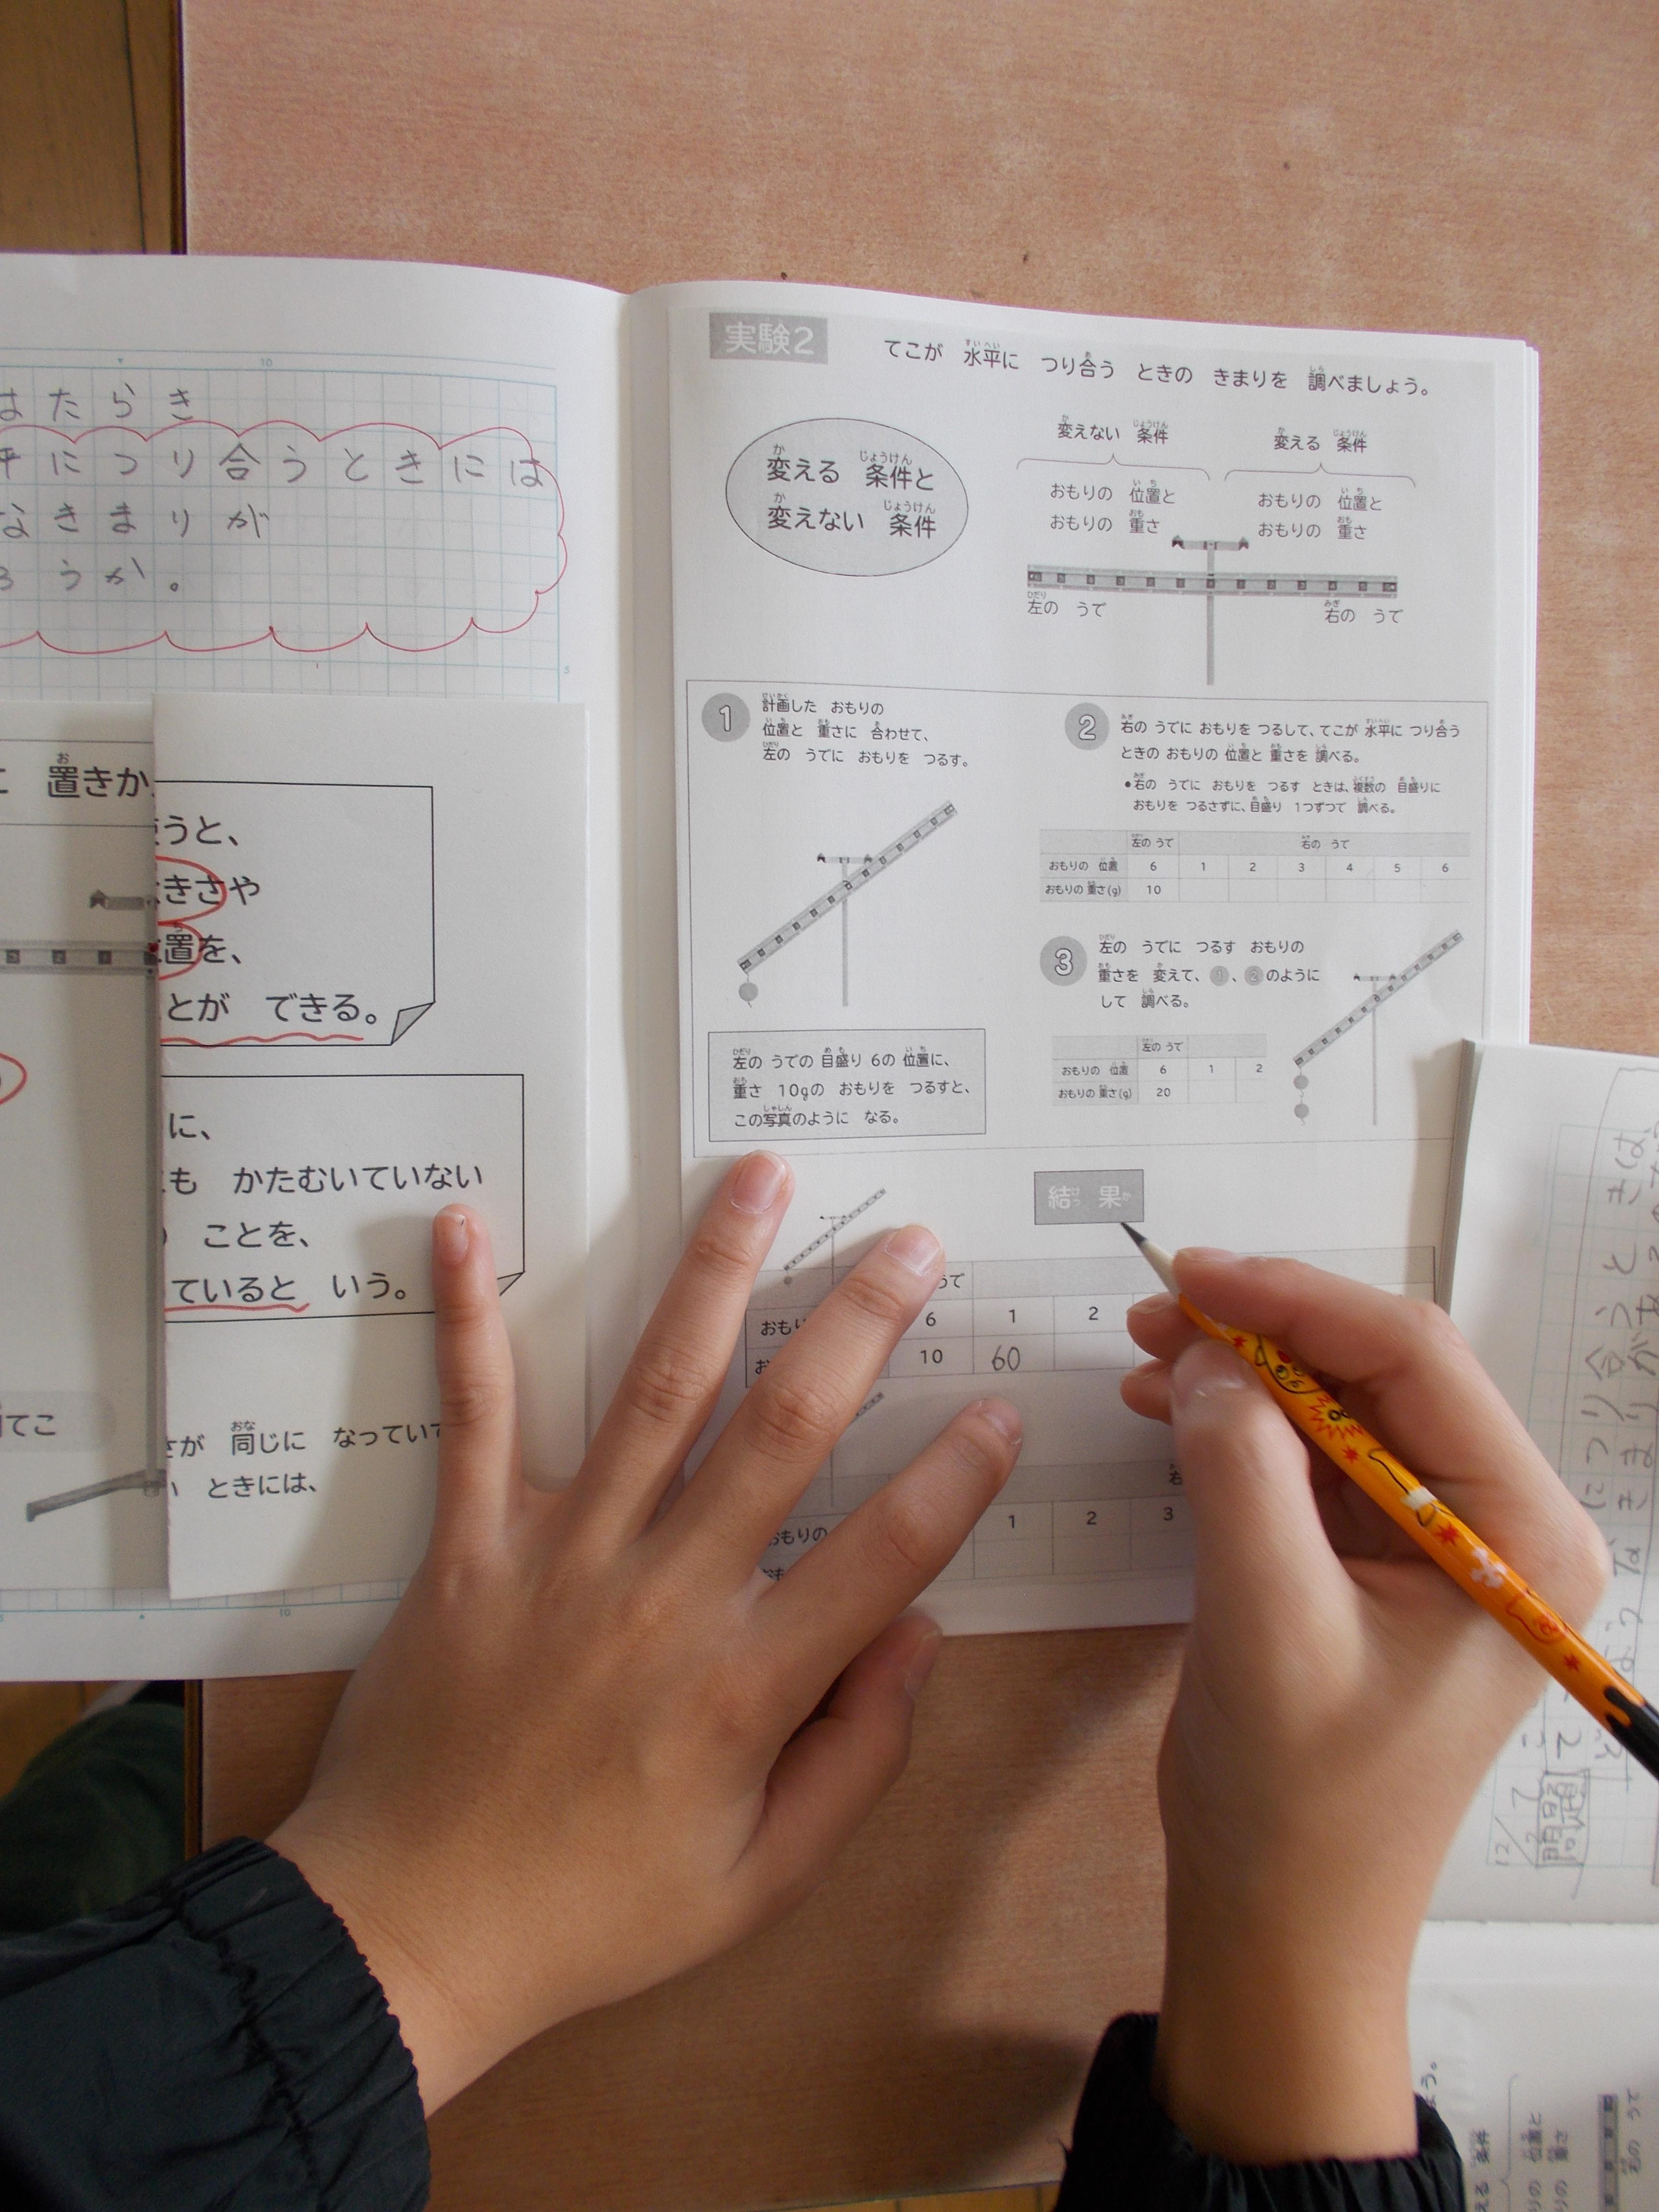 10
はたらき
平につり合うときには
なきまりが
ろうか。
5
置きか
うと、
きさや
置を、
とが できる。
に、
も かたむいていない
ことを、
ていると いう。
てこ
さが 同じに なってい
ときには、
10
実験2
てこが 水平に つり合う ときの きまりを 調べましょう。
変える 条件と
変えない 条件
変えない 条件
おもりの 位置と
おもりの 重さ
変える 条件
おもりの 位置と
おもりの 重さ
左の うで
右の うで
1
計画した おもりの
位置と 重さに 合わせて、
左の うでに おもりを つるす。
左の うでの 目盛り 6の 位置に、
重さ 10gの おもりを つるすと、
この写真のように なる。
2
右の うでに おもりを つるして、てこが 水平に つり合う
ときの おもりの 位置と 重さを 調べる。
●右の うでに おもりを つるす ときは、複数の 目盛りに
おもりを つるさずに、目盛り 1つずつで 調べる。
左の うで 右の うで
おもりの 位置 6 1 2 3 4 5 6
おもりの 重さ(g) 10
3
左の うでに つるす おもりの
重さを 変えて、1、2のように
して 調べる。
左の うで
おもりの 位置 6 1 2
おもりの 重さ(g) 20
結果
うで
おもり 6 1 2
お 10 60
右
おもりの 1 2 3
つり合うときは
きまりがあ
12/7
問題
条件
位置と
重さ
右の うで